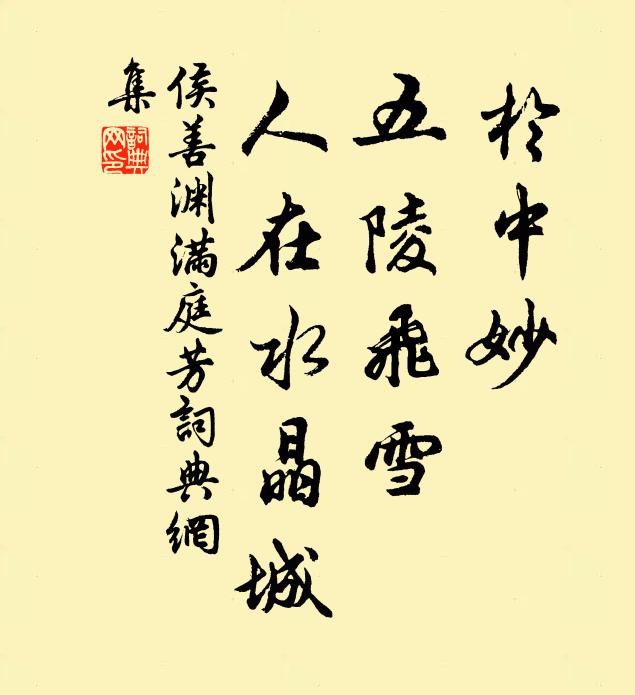 於中妙
五陵飛雪
人在水晶城
侯善渊满庭芳詞典網
集
詞典网印